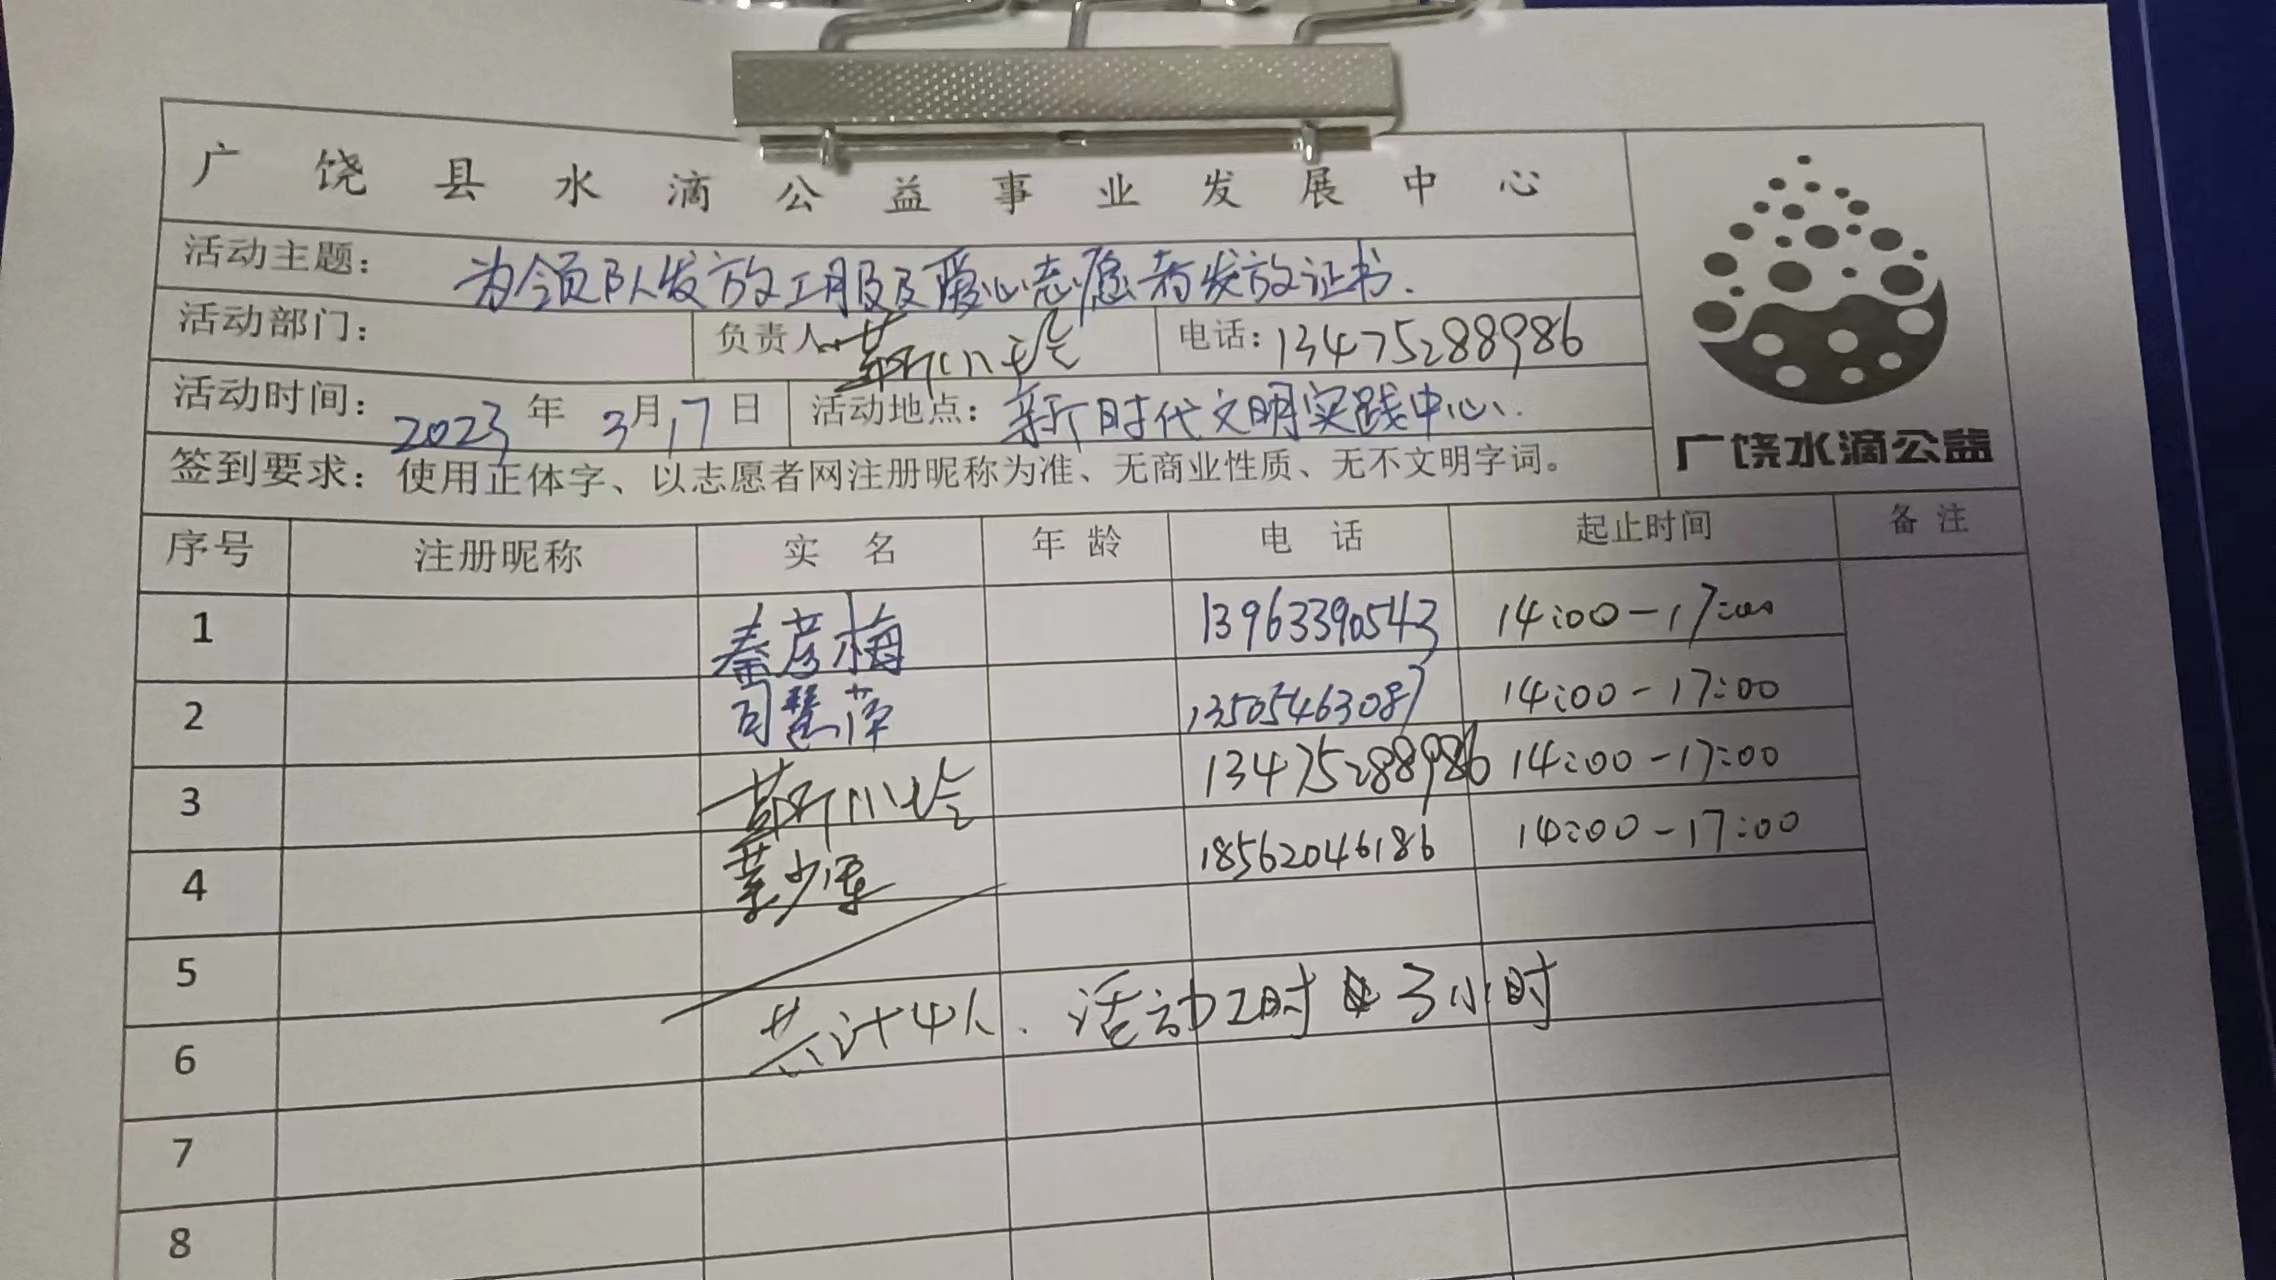 广饶县水滴公益事业发展中心
活动主题：为领队发放工服及爱心志愿者发放证书.
活动部门： 负责人：靳小玲 电话：13475288986
活动时间：2023年3月17日 活动地点：新时代文明实践中心.
签到要求：使用正体字、以志愿者网注册昵称为准、无商业性质、无不文明字词。
广饶水滴公益
序号 注册昵称 实名 年龄 电话 起止时间 备注
1 秦彦梅 13963390543 14:00-17:00
2 司慧萍 13505463087 14:00-17:00
3 靳小玲 13475288986 14:00-17:00
4 18562046186 14:00-17:00
5
共计4人. 活动工时 3小时
6
7
8